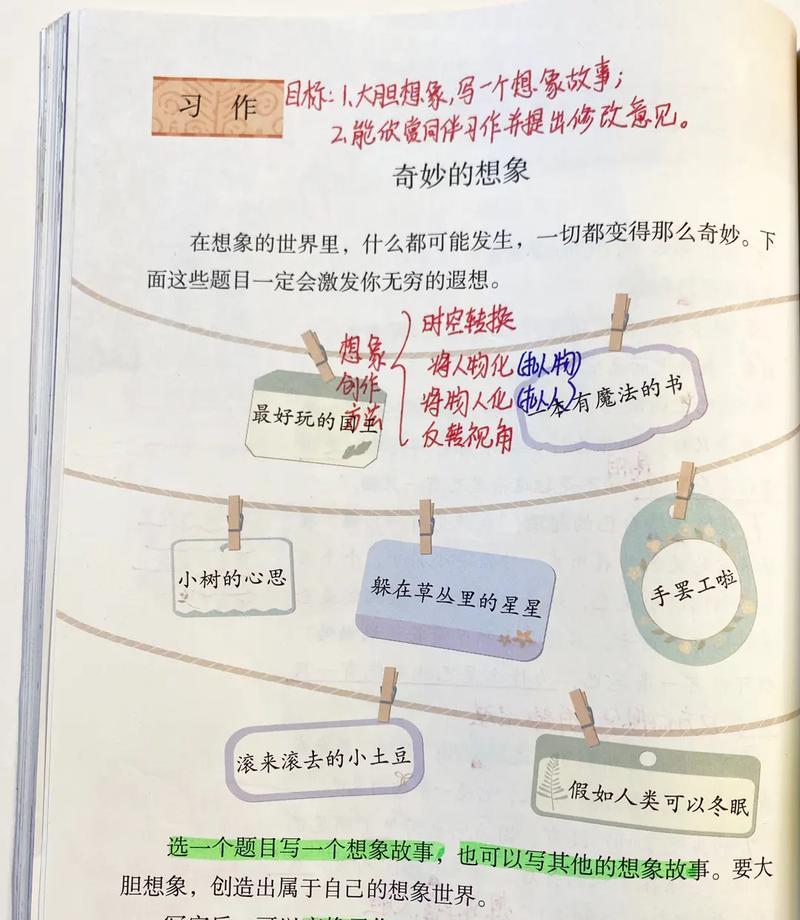 习 作
目标:1、大胆想象,写一个想象故事;
2、能欣赏同伴习作并提出修改意见。
奇妙的想象
在想象的世界里，什么都可能发生，一切都变得那么奇妙。下
面这些题目一定会激发你无穷的遐想。
想象
创作
方法
时空转换
将人物化(拟人物)
将物人化(拟人)
反转视角
最好玩的国王
一本有魔法的书
小树的心思
躲在草丛里的星星
手罢工啦
滚来滚去的小土豆
假如人类可以冬眠
选一个题目写一个想象故事，也可以写其他的想象故事。要大
胆想象，创造出属于自己的想象世界。